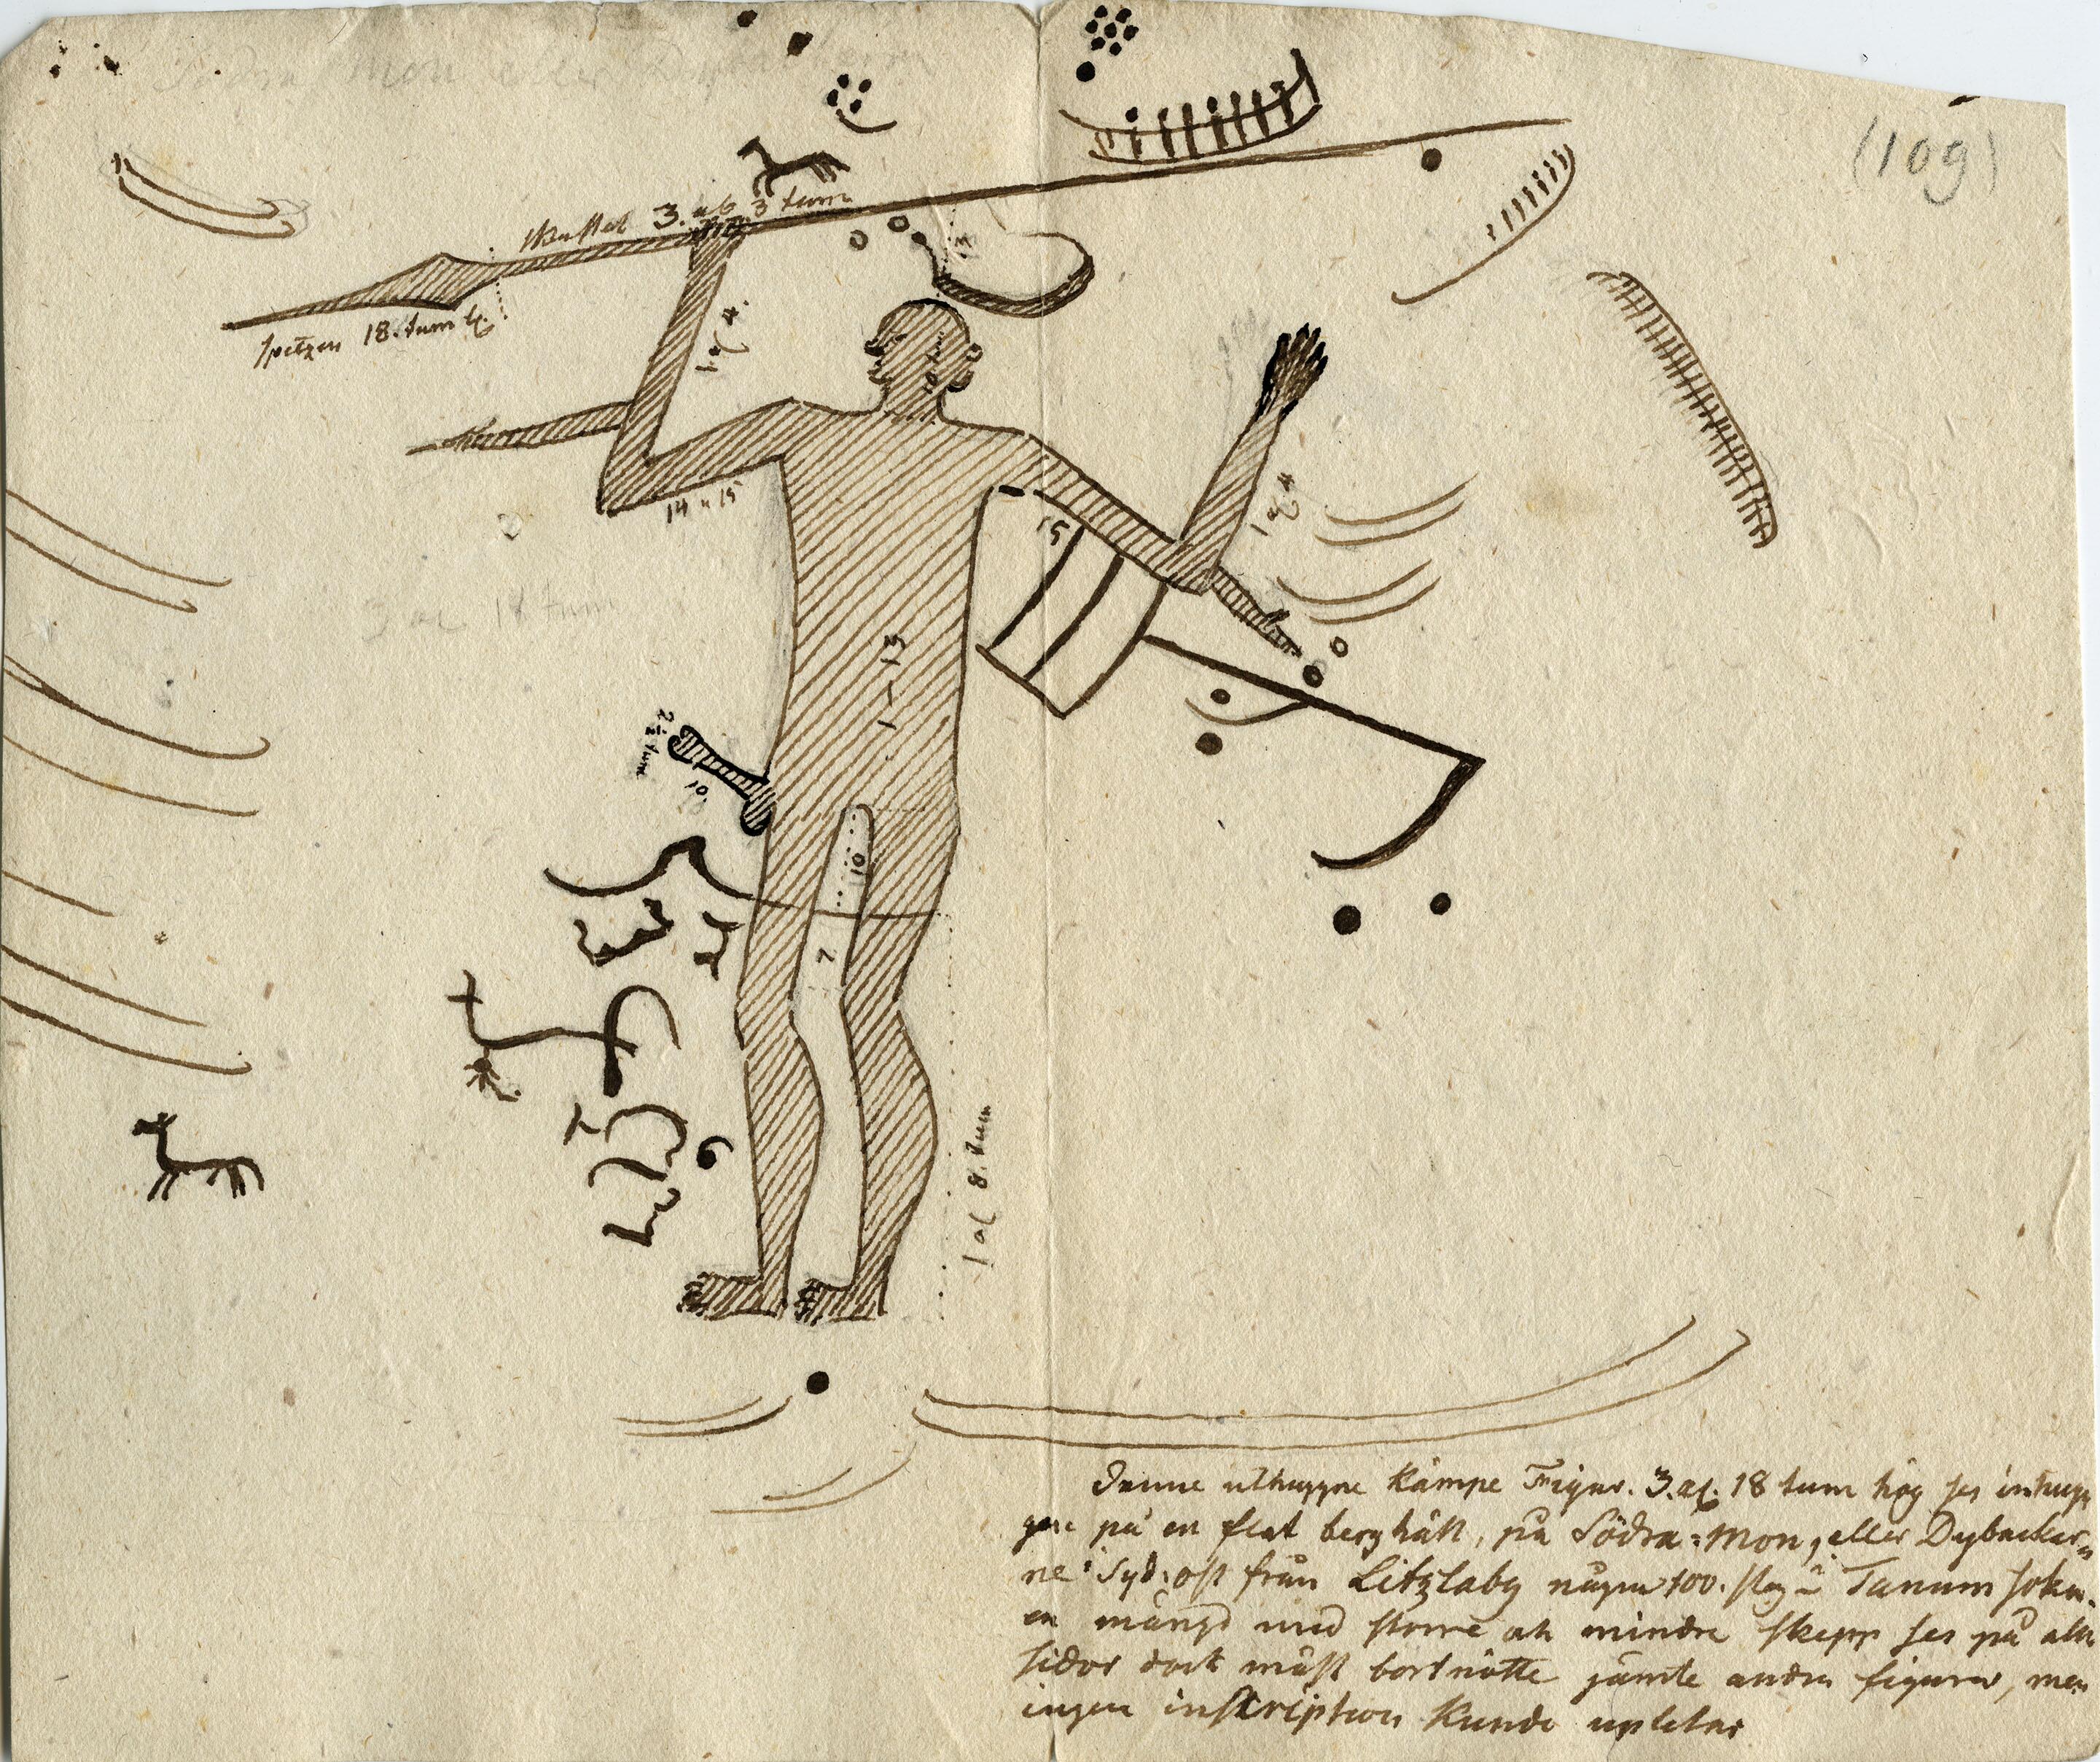 (109)
3. al. 3 tum
spetzen 18. tum l.
1 al 4.
10 tum
14 a 15
15
1 al 4
3 al 18 tum
1–13
2½ tum
10
10
7
1 al 8. tum
Denne uthuggne Kämpe Figur. 3. al. 18 tum hög ses inhug
gen på en flat berghäll, på Södra-Mon, eller Dybackar-
ne i Syd-ost från Litzlaby några 100. steg i Tanum sokn.
en mängd med storre och mindre skepp ses på alla
sidor dock mäst bortnötte jämte andra figurer, men
ingen inskription kunde upletas